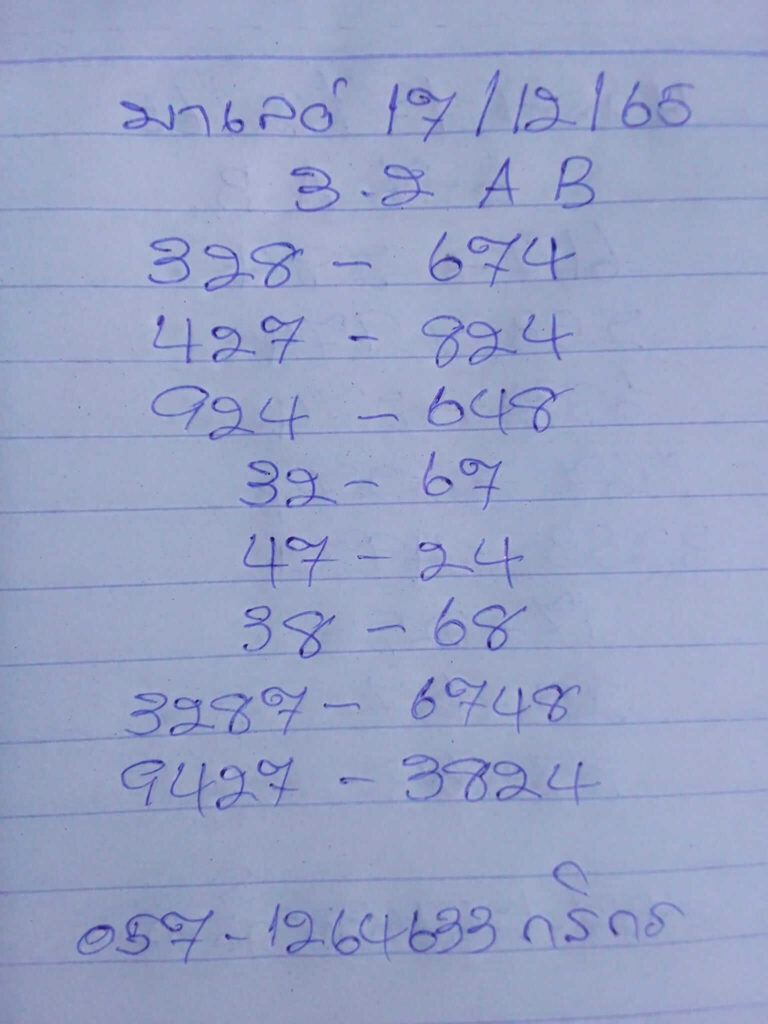 มาเลย์ 17/12/65
3.2 A B
328 - 674
427 - 824
924 - 648
32 - 67
47 - 24
38 - 68
3287 - 6748
9427 - 3824
057-1264633